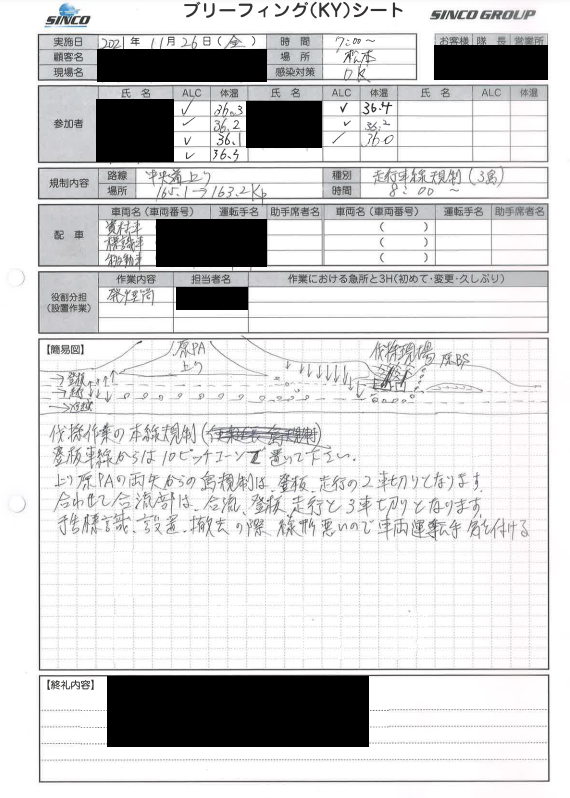 SINCO
ブリーフィング(KY)シート
SINCO GROUP
実施日 2021年 11月 26日(金) 時間 7:00~
お客様 隊長 営業所
顧客名 場所 松本
現場名 感染対策 OK
参加者 氏名 ALC 体温 氏名 ALC 体温 氏名 ALC 体温
✓ 36.3 ✓ 36.4
✓ 36.2 ✓ 36.2
✓ 36.1 ✓ 36.0
✓ 36.5
規制内容 路線 中央道上り 種別 走行車線規制(3島)
場所 165.1→163.2Kp 時間 8:00~
配車 車両名(車両番号) 運転手名 助手席者名 車両名(車両番号) 運転手名 助手席者名
資材車 ( )
標識車 ( )
( )
役割分担(設置作業) 作業内容 担当者名 作業における急所と3H(初めて・変更・久しぶり)
発煙筒
【簡易図】
原PA
上り
伐採現場
原BS
→登坂
→走行
→追越
伐採作業の本線規制
登坂車線からは10ピッチコーンで置いて下さい。
上り原PAの両矢からの島規制は、登坂、走行の2車切りとなります。
合わせて合流部は、合流、登坂、走行と3車切りとなります。
標識、設置、撤去の際 線形悪いので車両運転手 気を付ける
【終礼内容】